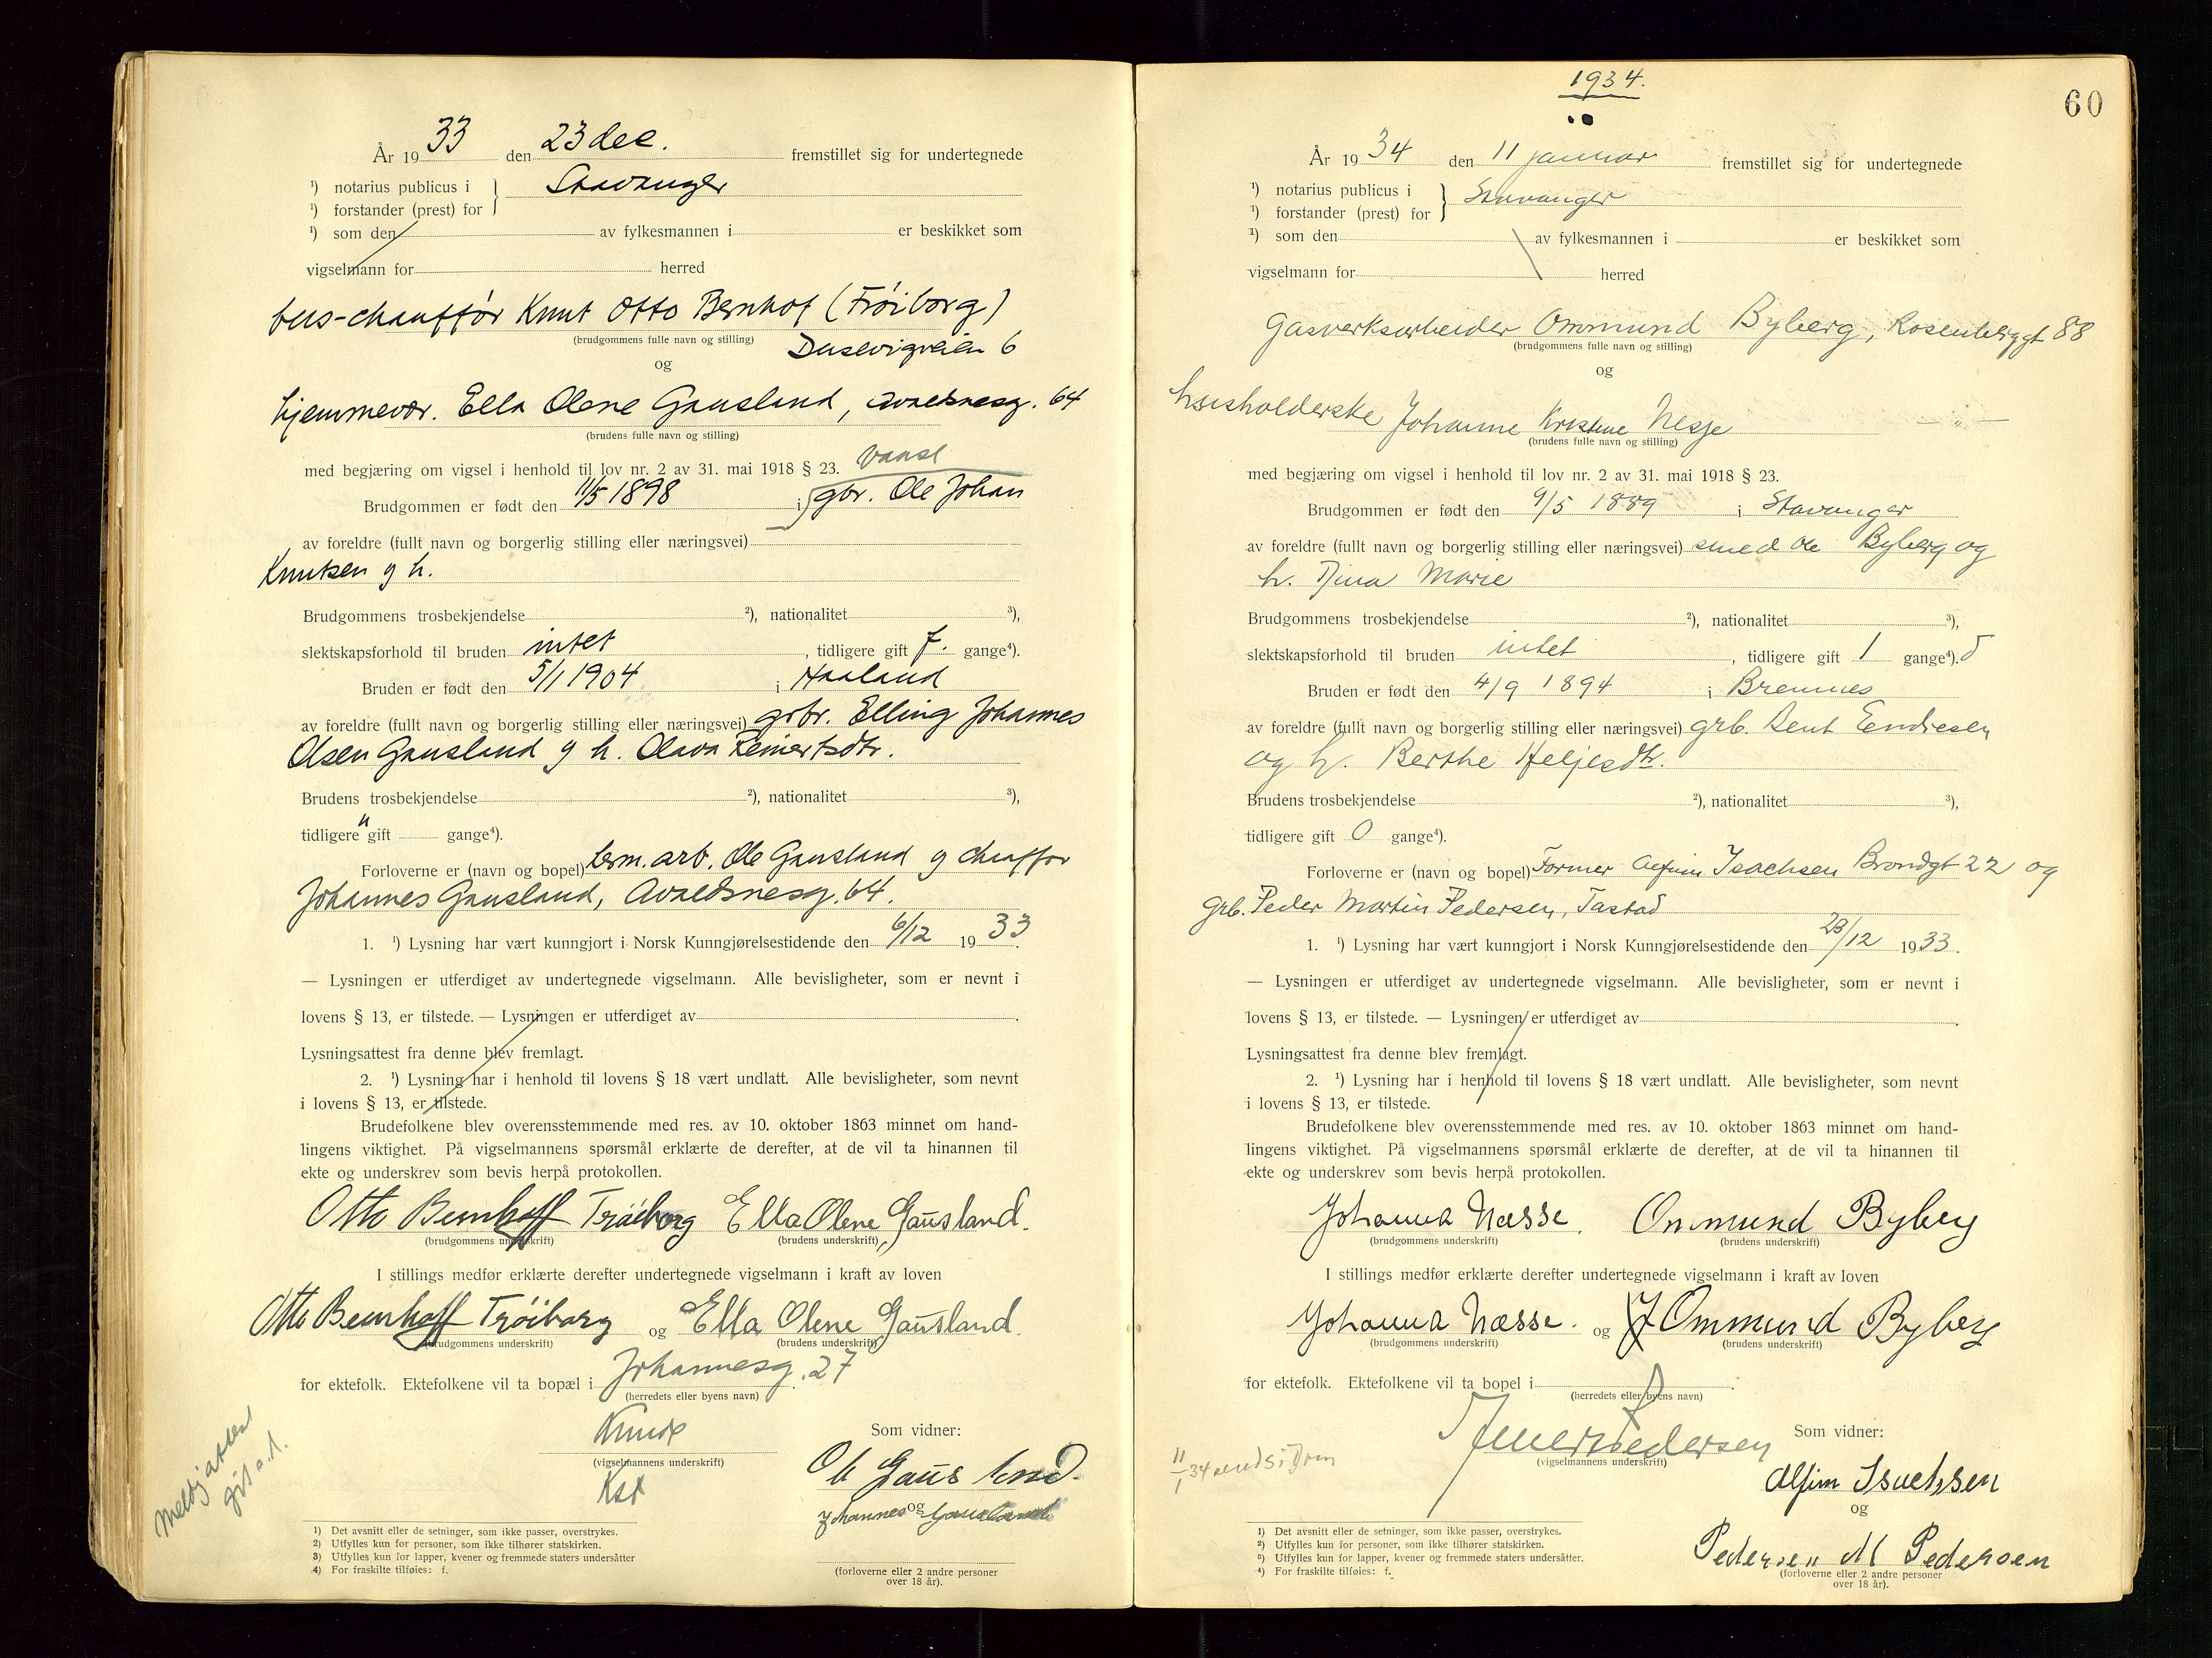 År 1933 den 23 dec. fremstillet sig for undertegnede
¹) notarius publicus i } Stavanger
¹) forstander (prest) for
¹) som den av fylkesmannen i er beskikket som
vigselmann for herred
bus-chauffør Knut Otto Bernhof (Trøiborg)
(brudgommens fulle navn og stilling) Dusevigveien 6
og
hjemmevær. Ella Olene Gausland, Avaldsnesg. 64
(brudens fulle navn og stilling)
med begjæring om vigsel i henhold til lov nr. 2 av 31. mai 1918 § 23. Vanse
Brudgommen er født den 11/5 1898 i gbr. Ole Johan
av foreldre (fullt navn og borgerlig stilling eller næringsvei)
Knutsen og h.
Brudgommens trosbekjendelse ²), nationalitet ³),
slektskapsforhold til bruden intet, tidligere gift gange⁴).
Bruden er født den 5/1 1904 i Haaland
av foreldre (fullt navn og borgerlig stilling eller næringsvei) grbr. Elling Johannes
Olsen Gausland og h. Olava Reinertsdtr.
Brudens trosbekjendelse ²), nationalitet ³),
tidligere gift " gange⁴).
Forloverne er (navn og bopel) herm. arb. Ole Gausland og chauffør
Johannes Gausland, Avaldsnesg. 64.
1. ¹) Lysning har vært kunngjort i Norsk Kunngjørelsestidende den 6/12 1933.
— Lysningen er utferdiget av undertegnede vigselmann. Alle bevisligheter, som er nevnt i
lovens § 13, er tilstede. — Lysningen er utferdiget av .
Lysningsattest fra denne blev fremlagt.
2. ¹) Lysning har i henhold til lovens § 18 vært undlatt. Alle bevisligheter, som nevnt
i lovens § 13, er tilstede.
Brudefolkene blev overensstemmende med res. av 10. oktober 1863 minnet om hand-
lingens viktighet. På vigselmannens spørsmål erklærte de derefter, at de vil ta hinannen til
ekte og underskrev som bevis herpå protokollen.
Otto Bernhoff Trøiborg Ella Olene Gausland.
(brudgommens underskrift) (brudens underskrift)
I stillings medfør erklærte derefter undertegnede vigselmann i kraft av loven
Otto Bernhoff Trøiborg og Ella Olene Gausland.
(brudgommens underskrift) (brudens underskrift)
for ektefolk. Ektefolkene vil ta bopæl i Johannesg. 27.
(herredets eller byens navn)
Som vidner:
(vigselmannens underskrift)
Ole Gausland.
og
Johannes Gausland
Meldj attest
git s. d.
1) Det avsnitt eller de setninger, som ikke passer, overstrykes.
2) Utfylles kun for personer, som ikke tilhører statskirken.
3) Utfylles kun for lapper, kvener og fremmede staters undersåtter
4) For fraskilte tilføies: f.
(forloverne eller 2 andre personer
over 18 år).
1934.
60
År 1934 den 11 januar fremstillet sig for undertegnede
¹) notarius publicus i } Stavanger
¹) forstander (prest) for
¹) som den av fylkesmannen i er beskikket som
vigselmann for herred
Gasverksarbeider Ommund Byberg, Rosenberggt 88
(brudgommens fulle navn og stilling)
og
husholderske Johanne Kristine Nesje — " —
(brudens fulle navn og stilling)
med begjæring om vigsel i henhold til lov nr. 2 av 31. mai 1918 § 23.
Brudgommen er født den 9/5 1889 i Stavanger
av foreldre (fullt navn og borgerlig stilling eller næringsvei) smed Ole Byberg og
h. Dina Marie
Brudgommens trosbekjendelse ²), nationalitet ³),
slektskapsforhold til bruden intet, tidligere gift 1 gange⁴). d
Bruden er født den 4/9 1894 i Bremnes
av foreldre (fullt navn og borgerlig stilling eller næringsvei) grb. Sent Endresen
og h. Berthe Heljesdtr.
Brudens trosbekjendelse ²), nationalitet ³),
tidligere gift 0 gange⁴).
Forloverne er (navn og bopel) Former Alfsin Isachsen Brondgt 22 og
grb. Peder Martin Pedersen, Tastad
1. ¹) Lysning har vært kunngjort i Norsk Kunngjørelsestidende den 28/12 1933.
— Lysningen er utferdiget av undertegnede vigselmann. Alle bevisligheter, som er nevnt i
lovens § 13, er tilstede. — Lysningen er utferdiget av .
Lysningsattest fra denne blev fremlagt.
2. ¹) Lysning har i henhold til lovens § 18 vært undlatt. Alle bevisligheter, som nevnt
i lovens § 13, er tilstede.
Brudefolkene blev overensstemmende med res. av 10. oktober 1863 minnet om hand-
lingens viktighet. På vigselmannens spørsmål erklærte de derefter, at de vil ta hinannen til
ekte og underskrev som bevis herpå protokollen.
Johanna Næsse. Ommund Byberg
(brudgommens underskrift) (brudens underskrift)
I stillings medfør erklærte derefter undertegnede vigselmann i kraft av loven
Johanna Næsse. og Ommund Byberg
(brudgommens underskrift) (brudens underskrift)
for ektefolk. Ektefolkene vil ta bopel i .
(herredets eller byens navn)
Som vidner:
Pedersen
(vigselmannens underskrift)
11/1 34
Alfsin Isachsen
og
Pedersen M Pedersen
1) Det avsnitt eller de setninger, som ikke passer, overstrykes.
2) Utfylles kun for personer, som ikke tilhører statskirken.
3) Utfylles kun for lapper, kvener og fremmede staters undersåtter.
4) For fraskilte tilføies: f.
(forloverne eller 2 andre personer
over 18 år).